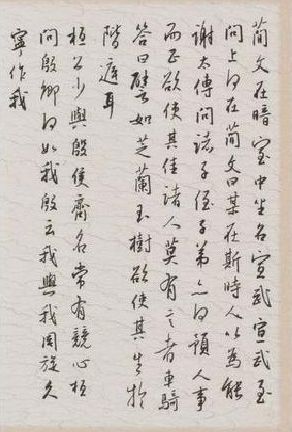 簡文在暗室中坐召宣武宣武至
問上何在簡文曰某在斯時人以為能
謝太傅問諸子侄子弟亦何預人事
而正欲使其佳諸人莫有言者車騎
答曰譬如芝蘭玉樹欲使其生於
階庭耳
桓公少與殷侯齊名常有競心桓
問殷卿何如我殷云我與我周旋久
寧作我